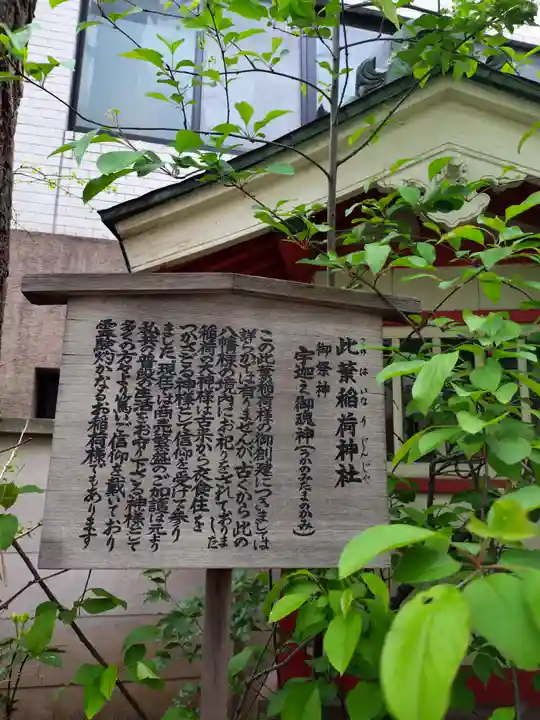 此葉稲荷神社
このはいなりじんじゃ
御祭神
宇迦之御魂神(うかのみたまのかみ)
この此葉稲荷様の御創建につきましては
詳らかでは有りませんが古くから此の
八幡様の境内にお祀りをされておりま
稲荷大神様は古来から衣食住を
つかさどる神様として信仰を受けて参り
ました現在は商売繁盛のご加護は元より
私共の普段の生活をお守り下さる神様として
多くの方々より篤いご信仰を戴いており
霊験灼かなるお稲荷様でもあります